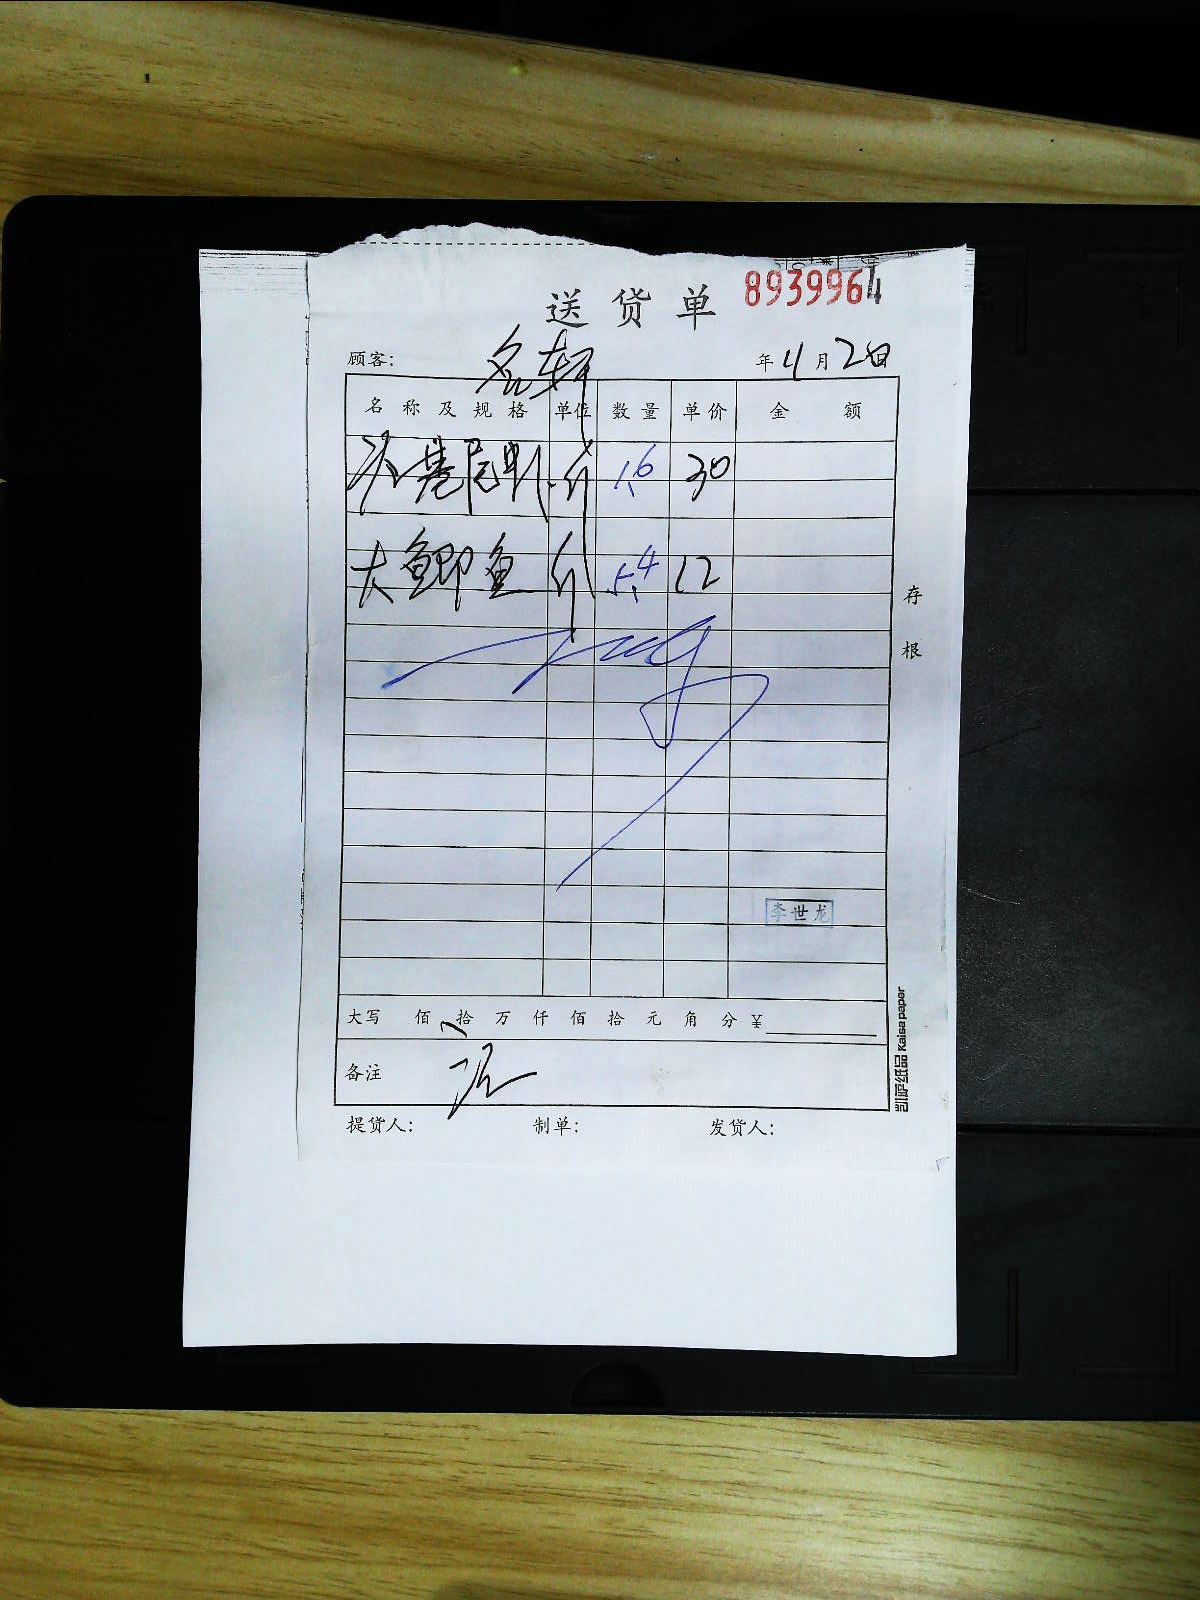 送货单 8939964
顾客： 名轩 年 4 月 2 日
名称及规格 单位 数量 单价 金额
冰基尾虾 斤 1.6 30
大鲫鱼 斤 5.4 12
存根
李世龙
大写 佰 拾 万 仟 佰 拾 元 角 分 ¥
备注
提货人： 制单： 发货人：
凯萨纸品 Kaisa paper